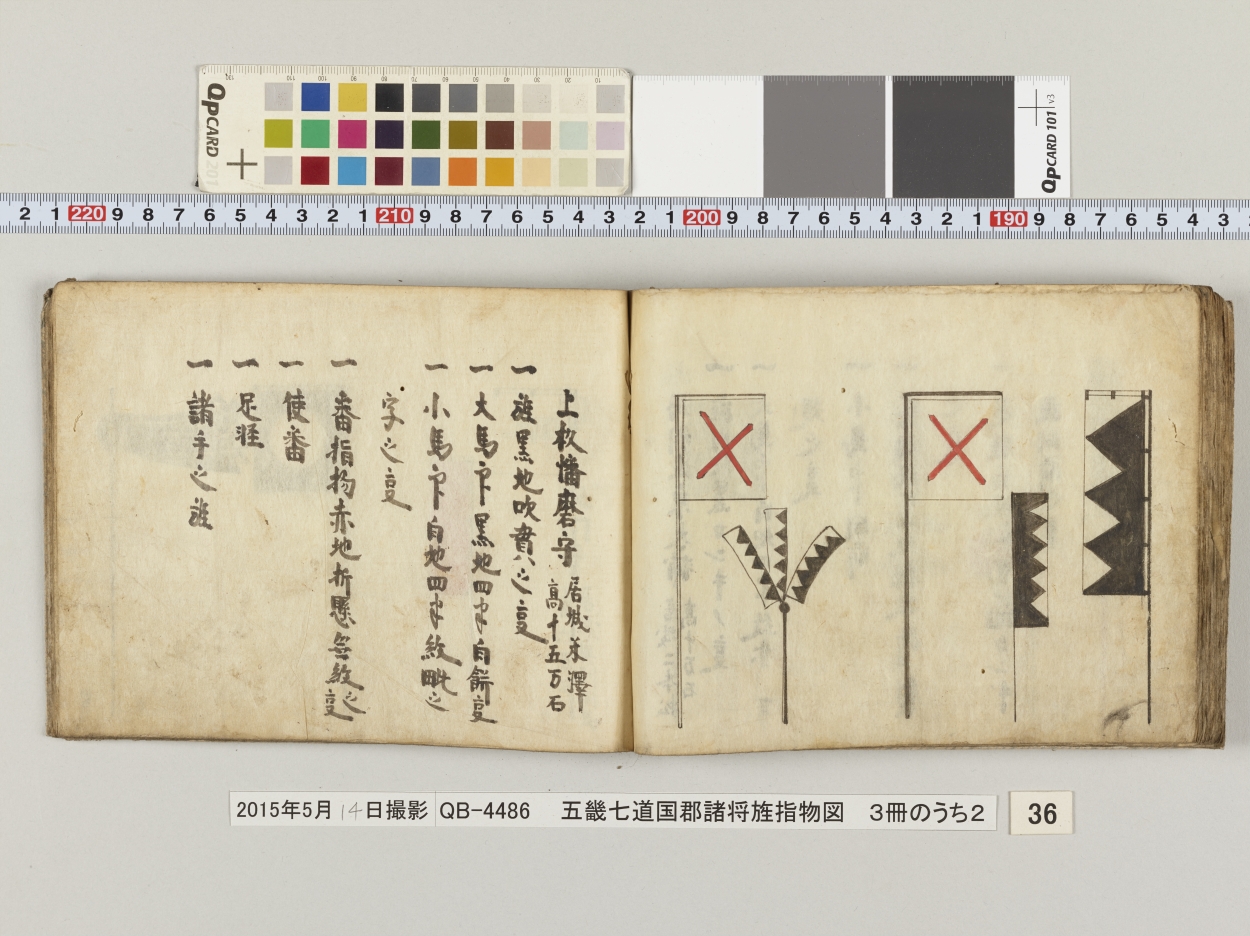 QPCARD 201
QPCARD 101 v3
2 1 220 9 8 7 6 5 4 3 2 1 210 9 8 7 6 5 4 3 2 1 200 9 8 7 6 5 4 3 2 1 190 9 8 7 6 5 4 3
上杦幡磨守 居城米澤 高十五万石
一 旌黒地吹貫ハ之㕝
一 大馬印黒地四半白餅㕝
一 小馬印白地四半紋毗之
字之㕝
一 番指物赤地折懸無紋之㕝
一 使番
一 足軽
一 諸手之旌
2015年5月14日撮影 QB-4486 五畿七道国郡諸将旌指物図 3冊のうち2
36